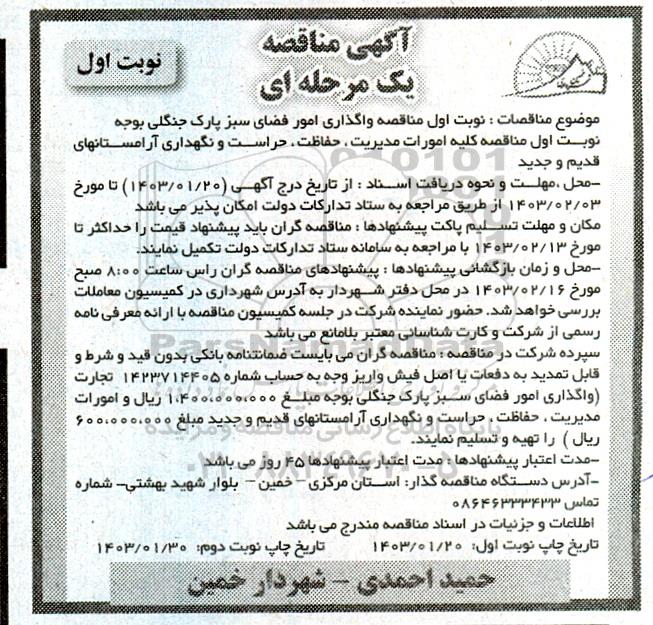 آگهی مناقصه
یک مرحله ای
نوبت اول
موضوع مناقصات : نوبت اول مناقصه واگذاری امور فضای سبز پارک جنگلی بوجه
نوبت اول مناقصه کلیه امورات مدیریت ، حفاظت ، حراست و نگهداری آرامستانهای
قدیم و جدید
-محل ،مهلت و نحوه دریافت اسناد : از تاریخ درج آگهی (۱۴۰۳/۰۱/۲۰) تا مورخ
۱۴۰۳/۰۲/۰۳ از طریق مراجعه به ستاد تدارکات دولت امکان پذیر می باشد
مکان و مهلت تسلیم پاکت پیشنهادها : مناقصه گران باید پیشنهاد قیمت را حداکثر تا
مورخ ۱۴۰۳/۰۲/۱۳ با مراجعه به سامانه ستاد تدارکات دولت تکمیل نمایند.
-محل و زمان بازگشائی پیشنهادها : پیشنهادهای مناقصه گران راس ساعت ۸:۰۰ صبح
مورخ ۱۴۰۳/۰۲/۱۶ در محل دفتر شهردار به آدرس شهرداری در کمیسیون معاملات
بررسی خواهد شد. حضور نماینده شرکت در جلسه کمیسیون مناقصه با ارائه معرفی نامه
رسمی از شرکت و کارت شناسائی معتبر بلامانع می باشد
سپرده شرکت در مناقصه : مناقصه گران می بایست ضمانتنامه بانکی بدون قید و شرط و
قابل تمدید به دفعات یا اصل فیش واریز وجه به حساب شماره ۱۴۲۳۷۱۴۴۰۵ تجارت
(واگذاری امور فضای سبز پارک جنگلی بوجه مبلغ ۱،۴۰۰،۰۰۰،۰۰۰ ریال و امورات
مدیریت ، حفاظت ، حراست و نگهداری آرامستانهای قدیم و جدید مبلغ ۶۰۰،۰۰۰،۰۰۰
ریال ) را تهیه و تسلیم نمایند.
-مدت اعتبار پیشنهادها : مدت اعتبار پیشنهادها ۴۵ روز می باشد
-آدرس دستگاه مناقصه گذار: استان مرکزی - خمین - بلوار شهید بهشتی- شماره
تماس ۰۸۶۴۶۳۳۳۴۳۳
اطلاعات و جزئیات در اسناد مناقصه مندرج می باشد
تاریخ چاپ نوبت اول: ۱۴۰۳/۰۱/۲۰ تاریخ چاپ نوبت دوم: ۱۴۰۳/۰۱/۳۰
حمید احمدی - شهردار خمین
ParsNamadData